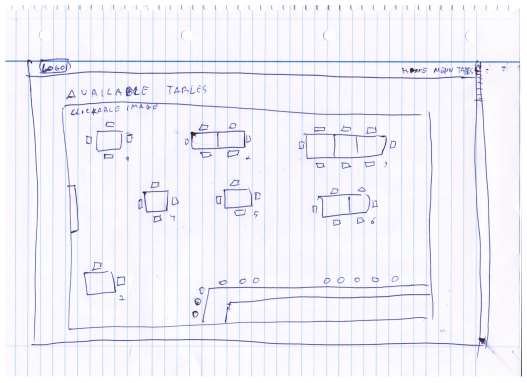 LOGO
HOME MENU TABLES
AVAILABLE TABLES
CLICKABLE IMAGE
7
5
6
2